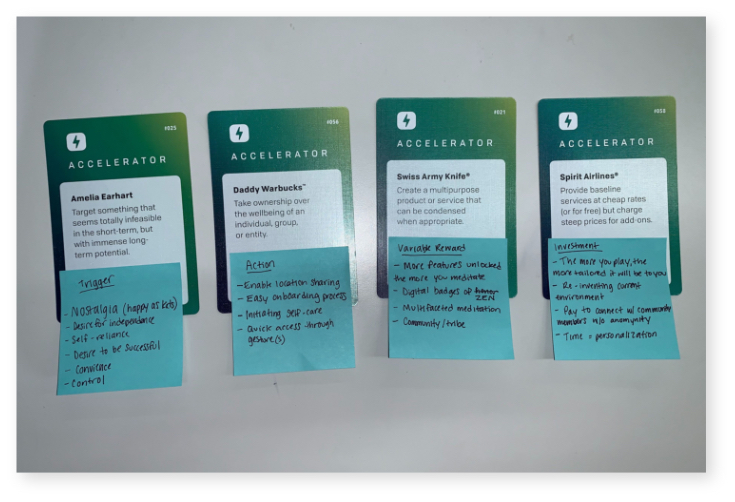 #025
ACCELERATOR
Amelia Earhart
Target something that
seems totally infeasible
in the short-term, but
with immense long-
term potential.
Trigger
- Nostalgia (happy as kids)
- Desire for independence
- Self-reliance
- Desire to be successful
- Convience
- Control
#056
ACCELERATOR
Daddy Warbucks™
Take ownership over
the wellbeing of an
individual, group,
or entity.
Action
- Enable location sharing
- Easy onboarding process
- Initiating self-care
- Quick access through
gesture(s)
#021
ACCELERATOR
Swiss Army Knife®
Create a multipurpose
product or service that
can be condensed
when appropriate.
Variable Reward
- More features unlocked
the more you meditate
- Digital badges of
ZEN
- Multifaceted meditation
- Community/tribe
ACCELERATOR
Spirit Airlines®
Provide baseline
services at cheap rates
(or for free) but charge
steep prices for add-ons.
Investment
- The more you play, the
more tailored it will be to you
- Re-investing current
environment
- Pay to connect w/ community
members w/o anonymity
- Time = personalization